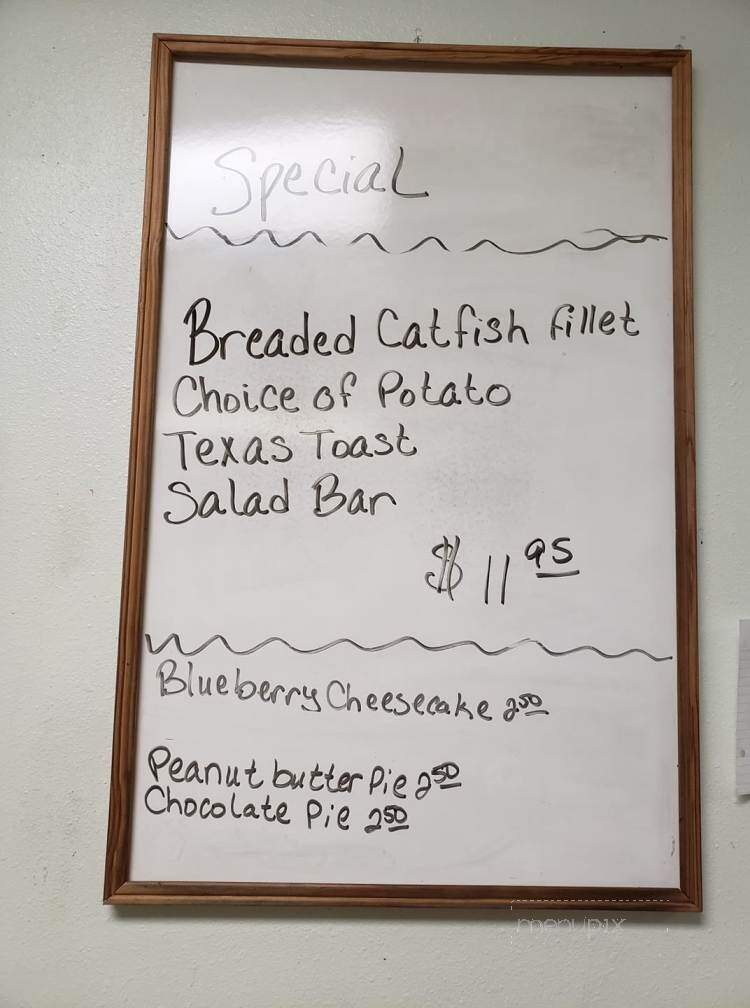 Special
Breaded Catfish fillet
Choice of Potato
Texas Toast
Salad Bar
$11 95
Blueberry Cheesecake 2 50
Peanut butter Pie 2 50
Chocolate Pie 2 50
menupix